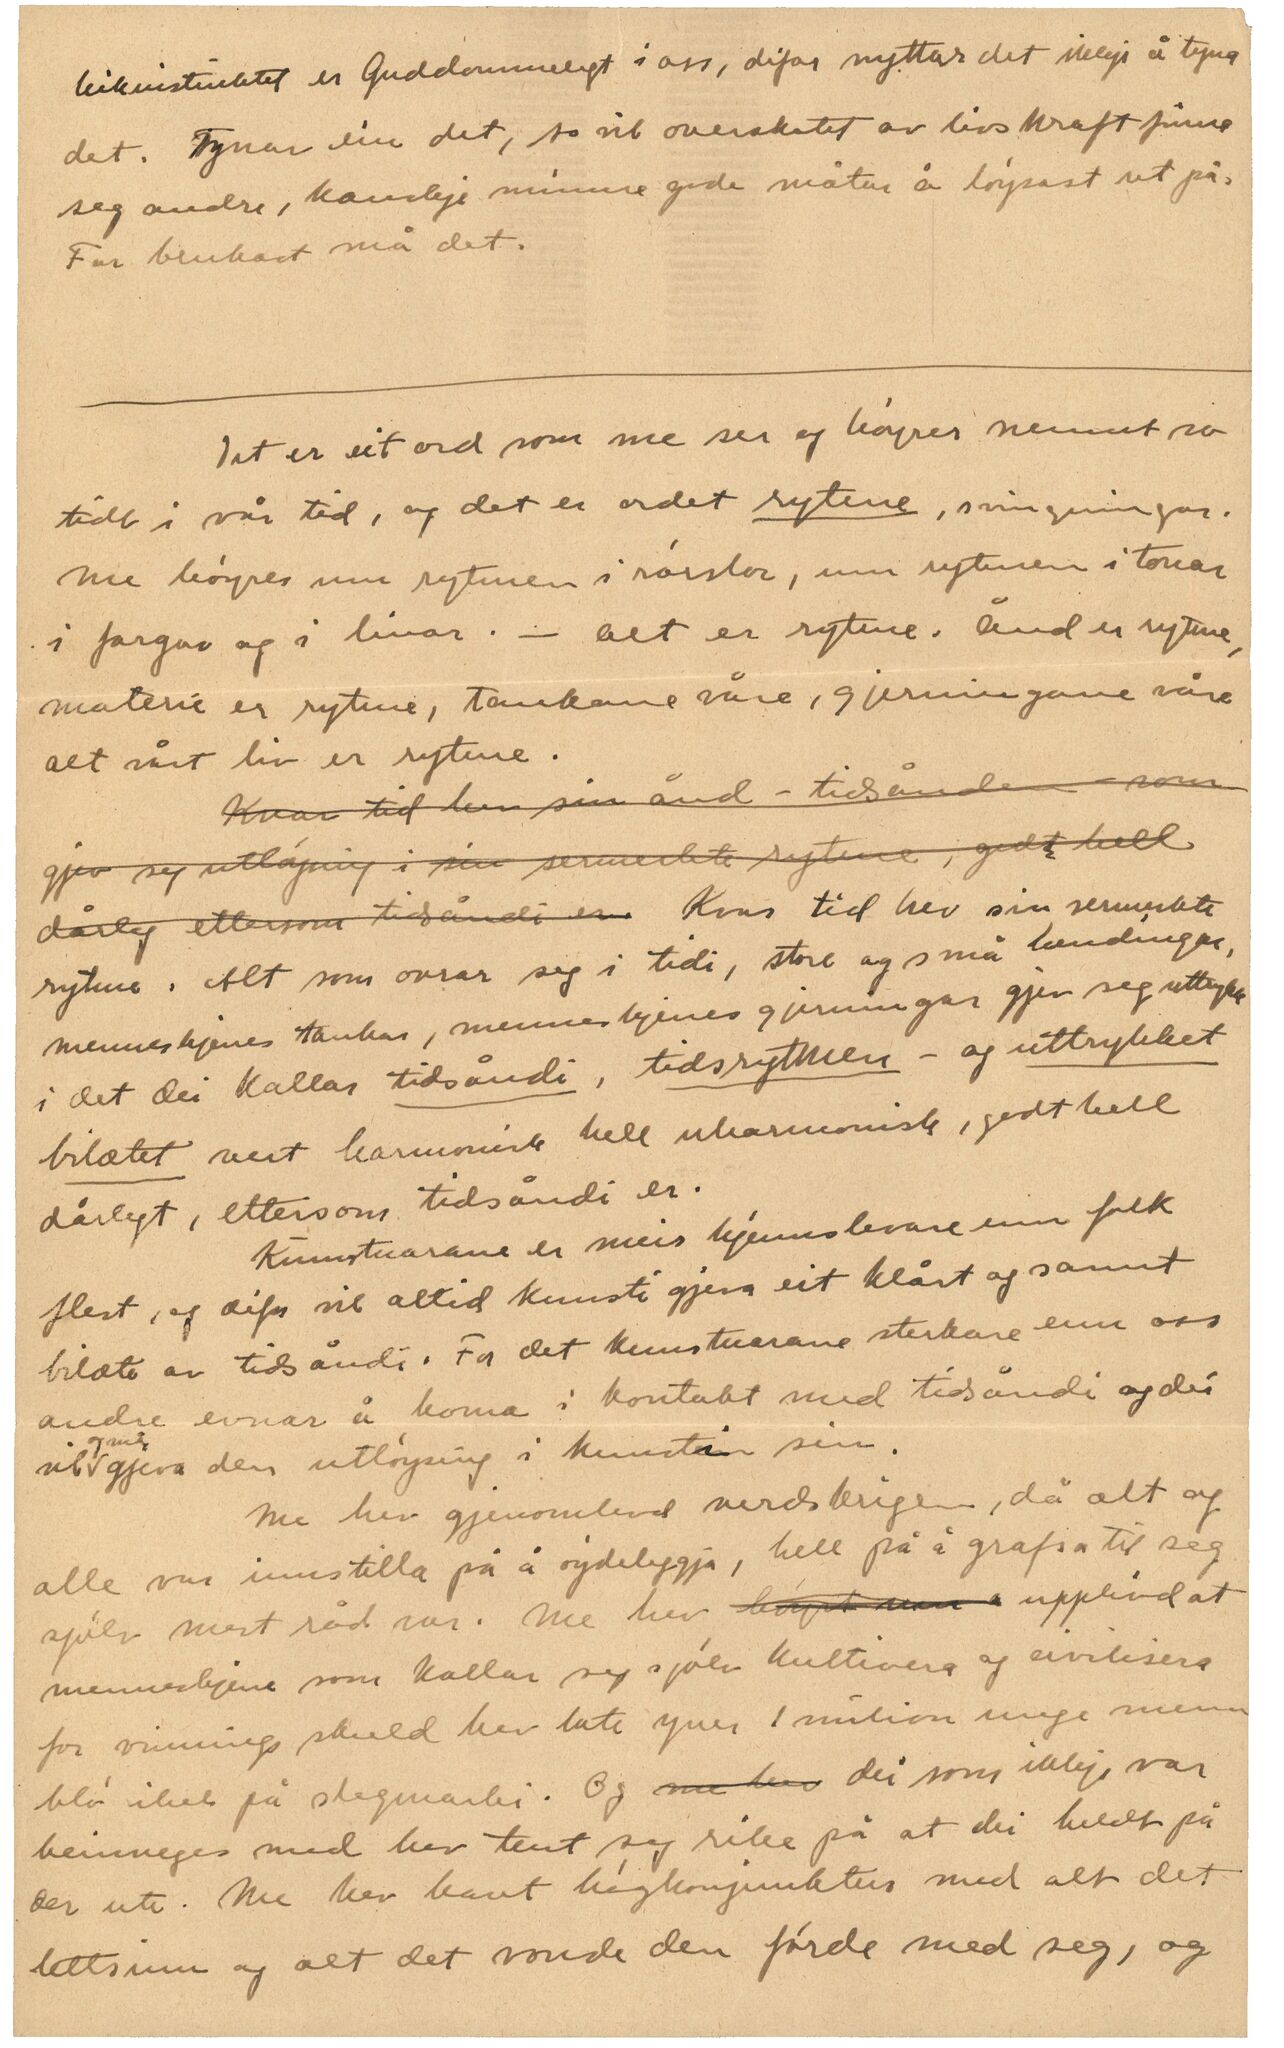 leikinstinktet er Guddommelegt i oss, difor nyttar det ikkje å tyna
det. Tynar ein det, so vil overskotet av livskraft finne
seg andre, kanskje minnre gode måtar å løysast ut på.
For brukast må det.
Det er eit ord som me ser og høyrer nemnt so
tidt i vår tid, og det er ordet rytme, svingningar.
Me høyres um rytmen i rørslor, um rytmen i tonar
i fargar og i linor. — alt er rytme. Ånd er rytme,
materie er rytme, tankane våre, gjerningane våre
alt vårt liv er rytme.
Kvar tid hev sin ånd - tidsånden - som
gjev seg utløysing i sin sermerkte rytme, godt hell
dårleg ettersom tidsåndi er. Kvar tid hev sin sermerkte
rytme. Alt som ovrar seg i tidi, store og små hendingar,
menneskjenes tankar, menneskjenes gjerningar gjev seg uttrykk
i det dei kallar tidsåndi, tidsrytmen - og uttrykket
bilætet vert harmonisk hell uharmonisk, godt hell
dårlegt, ettersom tidsåndi er.
Kunstnarane er meir kjennslevare enn folk
flest, og difor vil altid kunsti gjeva eit klårt og sannt
bilæte av tidsåndi. For det kunstnarane sterkare enn oss
andre evnar å koma i kontakt med tidsåndi og dei
vil og må gjeva den utløysing i kunsten sin.
Me hev gjenomlevd verdskrigen, då alt og
alle var innstilla på å øydeleggja, hell på å grafsa til seg
sjølv mest råd var. Me hev upplivd at
menneskjene som kallar seg sjølv kultivera og civilisera
for vinnings skuld hev late yver 1 milion unge menn
blø ihel på slagmarki. Og me hev dei som ikkje var
beinveges med hev tent seg rike på at dei heldt på
der ute. Me hev havt høgkonjunktur med alt det
lettsinn og alt det vonde den førde med seg, og